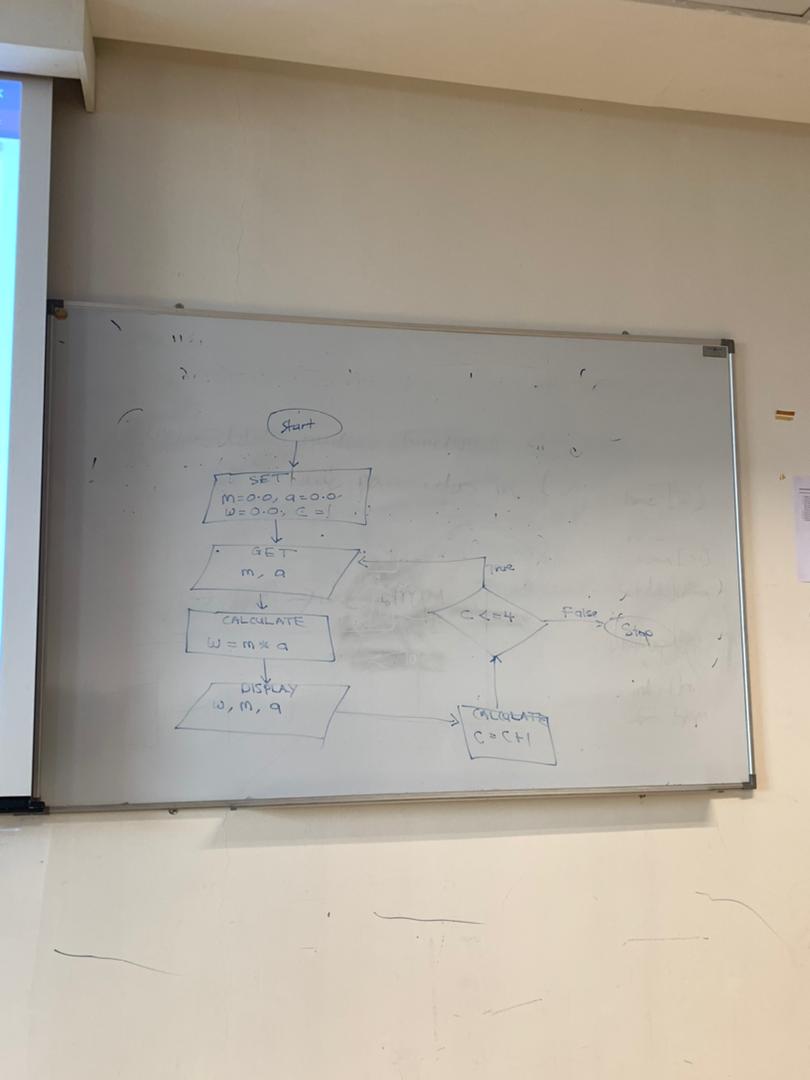 Start
SET
m=0.0, a=0.0
w=0.0, c=1
GET
m, a
CALCULATE
w=m*a
DISPLAY
w, m, a
CALCULATE
c=c+1
c<=4
True
False
Stop